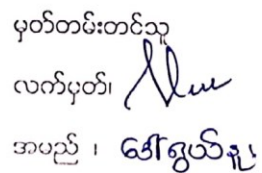 မှတ်တမ်းတင်သူ
လက်မှတ်၊
အမည် ၊ ဒေါ်ရွယ်နု